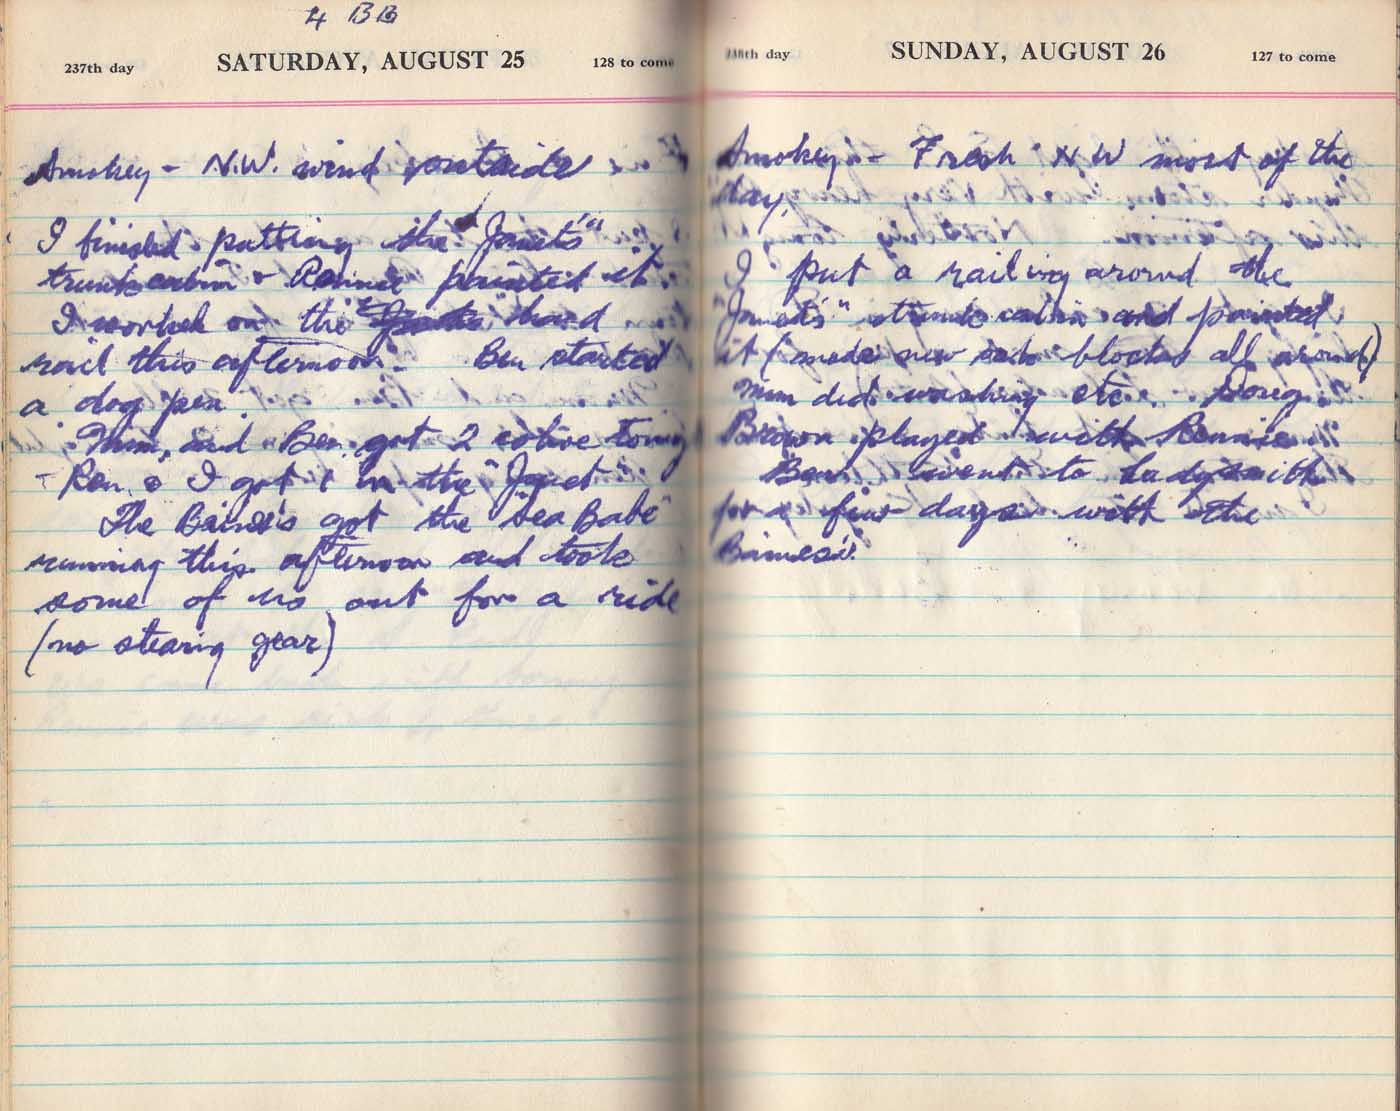 4 BB
237th day SATURDAY, AUGUST 25 128 to come
Smokey - N.W. wind outside
I finished putting the "Janets"
trunk cabin & Rennie painted it.
I worked on the hand
rail this afternoon. Ben started
a dog pen.
Mum, and Ben got 2 cohoe tonig
- Ren & I got 1 in the "Janet
The Baines's got the "Sea Babe"
running this afternoon and took
some of us out for a ride
(no stearing gear)
238th day SUNDAY, AUGUST 26 127 to come
Smokey - Fresh N W most of the
day.
I put a railing around the
"Janets" trunk cabin and painted
it (made new oak blocks all around)
Mum did washing etc. Doug
Brown played with Rennie
Ben went to Ladysmith
for a few days with the
Baines's.